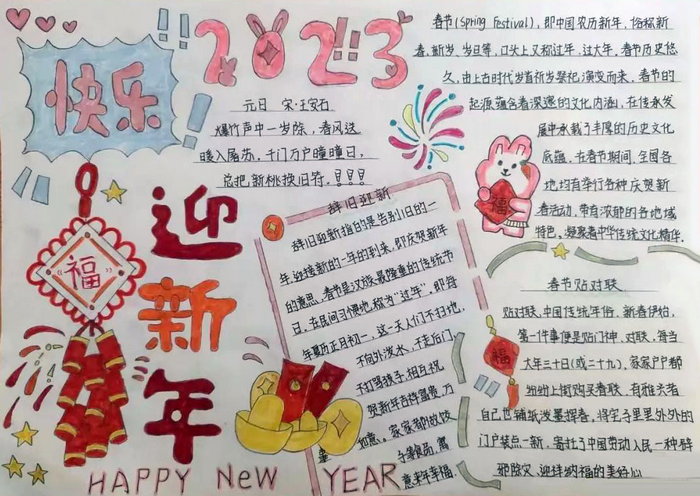 快乐
2023
元日 宋·王安石
爆竹声中一岁除，春风送
暖入屠苏，千门万户曈曈日，
总把新桃换旧符。
迎新年
福
辞旧迎新
辞旧迎新指的是告别旧的一
年,迎接新的一年的到来，即庆贺新年
的意思，春节是汉族最隆重的传统节
日，在民间习惯地,称为“过年”，即每
年夏历正月初一，这一天人们不扫地，
不向外泼水，不走后门
不打骂孩子，相互祝
贺新年吉祥富贵，万
事如意。家家都做饭
意来年幸福
HAPPY NeW YEAR
春节(Spring Festival)，即中国农历新年，俗称新
春、新岁、岁旦等，口头上又称过年、过大年。春节历史悠
久，由上古时代岁首祈岁祭祀演变而来。春节的
起源蕴含着深邃的文化内涵，在传承发
展中承载了丰厚的历史文化
底蕴。在春节期间，全国各
地均有举行各种庆贺新
春活动，带有浓郁的各地域
特色，凝聚着中华传统文化精华。
福
春节贴对联
贴对联，中国传统年俗，新春伊始，
第一件事便是贴门神、对联，每当
大年三十日(或二十九)，家家户户都
纷纷上街购买春联，有雅兴者
自己也铺纸泼墨挥春，将宅子里里外外的
门户装点一新，寄托了中国劳动人民一种辟
邪除灾、迎祥纳福的美好心
福